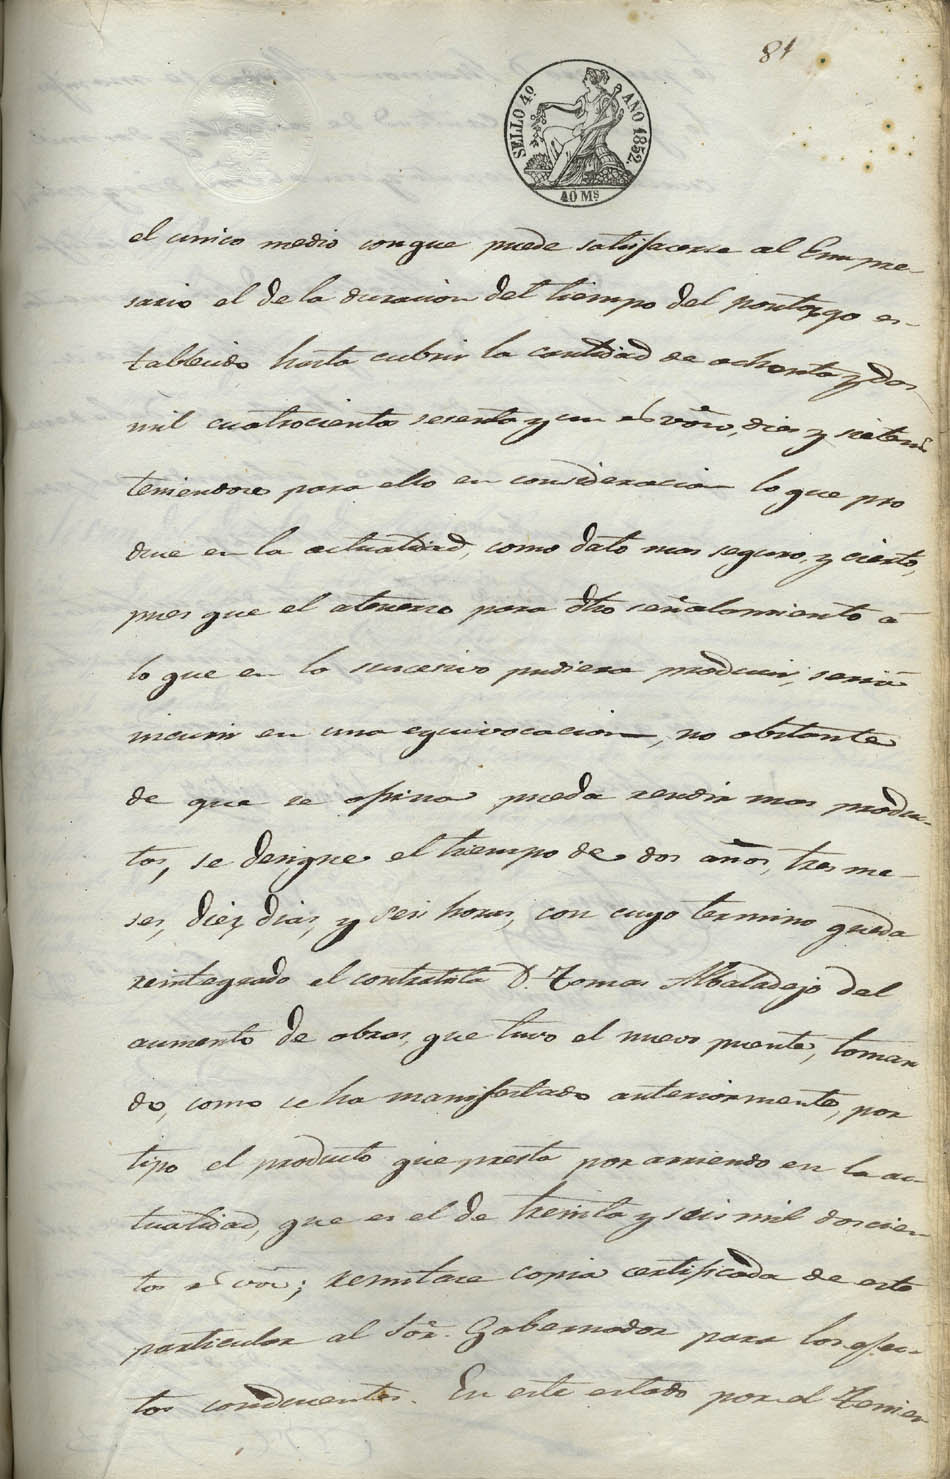 81
SELLO 4º AÑO 1852.
40 Ms
el unico medio conque puede satisfacerse al Empre-
sario el de la duracion del tiempo del pontazgo es-
tablecido hasta cubrir la cantidad de ochenta y dos
mil cuatrocientos sesenta y un rs von, diez y siete ms
teniendose para ello en consideracion lo que pro
duce en la actualidad, como dato mas seguro, y cierto,
pues que el atenerse para dho señalamiento á
lo que en lo sucesivo pudiera producir, seria
incurrir en una equivocacion, no obstante
de que se opina pueda rendir mas produc-
tos, se designe el tiempo de dos años, tres me-
ses, diez dias, y seis horas, con cuyo termino queda
reintegrado el contratista D. Tomas Albaladejo del
aumento de obras, que tuvo el nuevo puente, toman
do, como se ha manifestado anteriormente, por
tipo el producto que presta por arriendo en la ac
tualidad, que es el de treinta y seis mil doscien-
tos rs von; remitase copia certificada de este
particular al Sor. Gobernador para los efec-
tos conducentes. En este estado por el Tenien